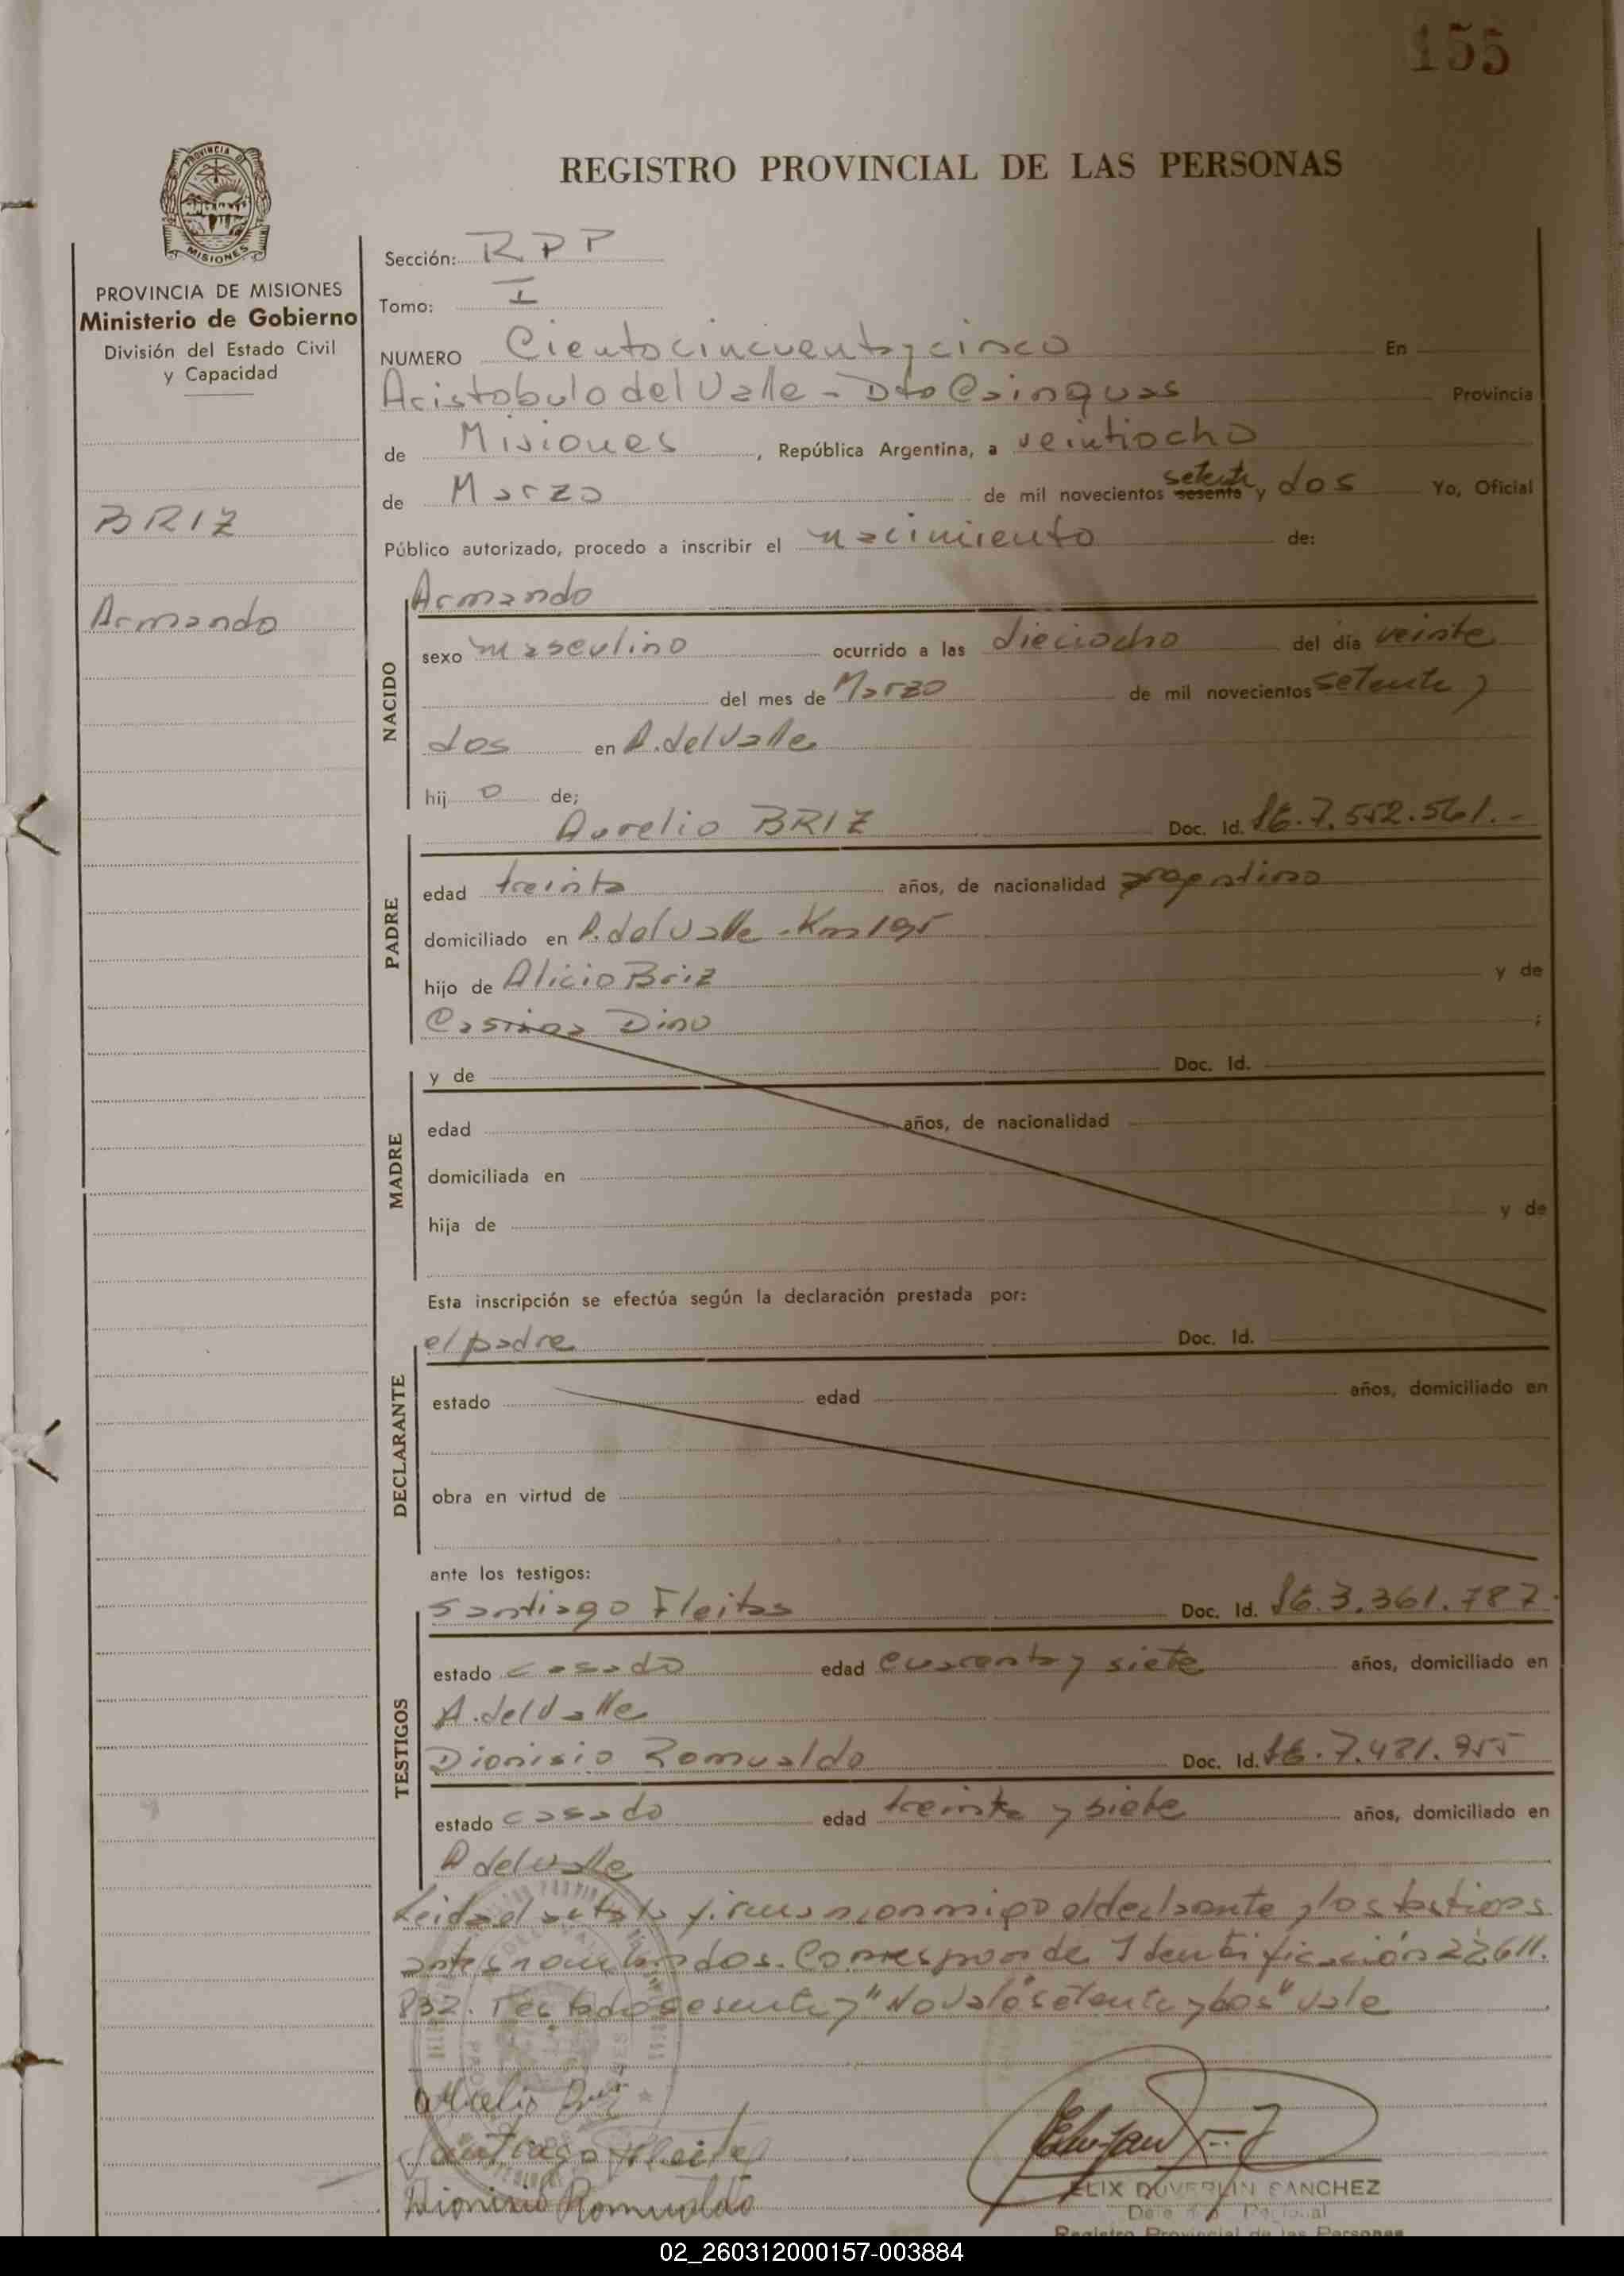 155
REGISTRO PROVINCIAL DE LAS PERSONAS
PROVINCIA DE
MISIONES
PROVINCIA DE MISIONES
Ministerio de Gobierno
División del Estado Civil
y Capacidad
BRIZ
Armando
Sección: RPP
Tomo: I
NUMERO Ciento cincuenta y cinco En
Aristobulo del Valle - Dto Cainguas Provincia
de Misiones, República Argentina, a veintiocho
de Marzo de mil novecientos sesenta setenta y dos Yo, Oficial
Público autorizado, procedo a inscribir el nacimiento de:
Armando
NACIDO
sexo masculino ocurrido a las dieciocho del día veinte
del mes de Marzo de mil novecientos setenta y
dos en A. del Valle
hij o de;
PADRE
Aurelio BRIZ Doc. Id. 7.552.561.-
edad treinta años, de nacionalidad argentino
domiciliado en A. del Valle - Km 195
hijo de Alicio Briz y de
Dino ;
MADRE
y de Doc. Id.
edad años, de nacionalidad
domiciliada en
hija de y de
Esta inscripción se efectúa según la declaración prestada por:
DECLARANTE
el padre Doc. Id.
estado edad años, domiciliado en
obra en virtud de
ante los testigos:
TESTIGOS
Santiago Fleitas Doc. Id. 3.361.787.
estado casado edad cuarenta y siete años, domiciliado en
A. del Valle
Dionisio Romualdo Doc. Id. 7.481.955
estado casado edad treinta y siete años, domiciliado en
A del Valle
Leida el acta la firman conmigo el declarante y los testigos
antes nombrados. Corresponde Identificación 22611.
832. Testado sesenta y "No vale setenta y dos" vale
Aurelio Briz
Santiago Fleitas
Dionisio Romualdo
FELIX DUVERLIN SANCHEZ
Registro Provincial de las Personas
02_260312000157-003884